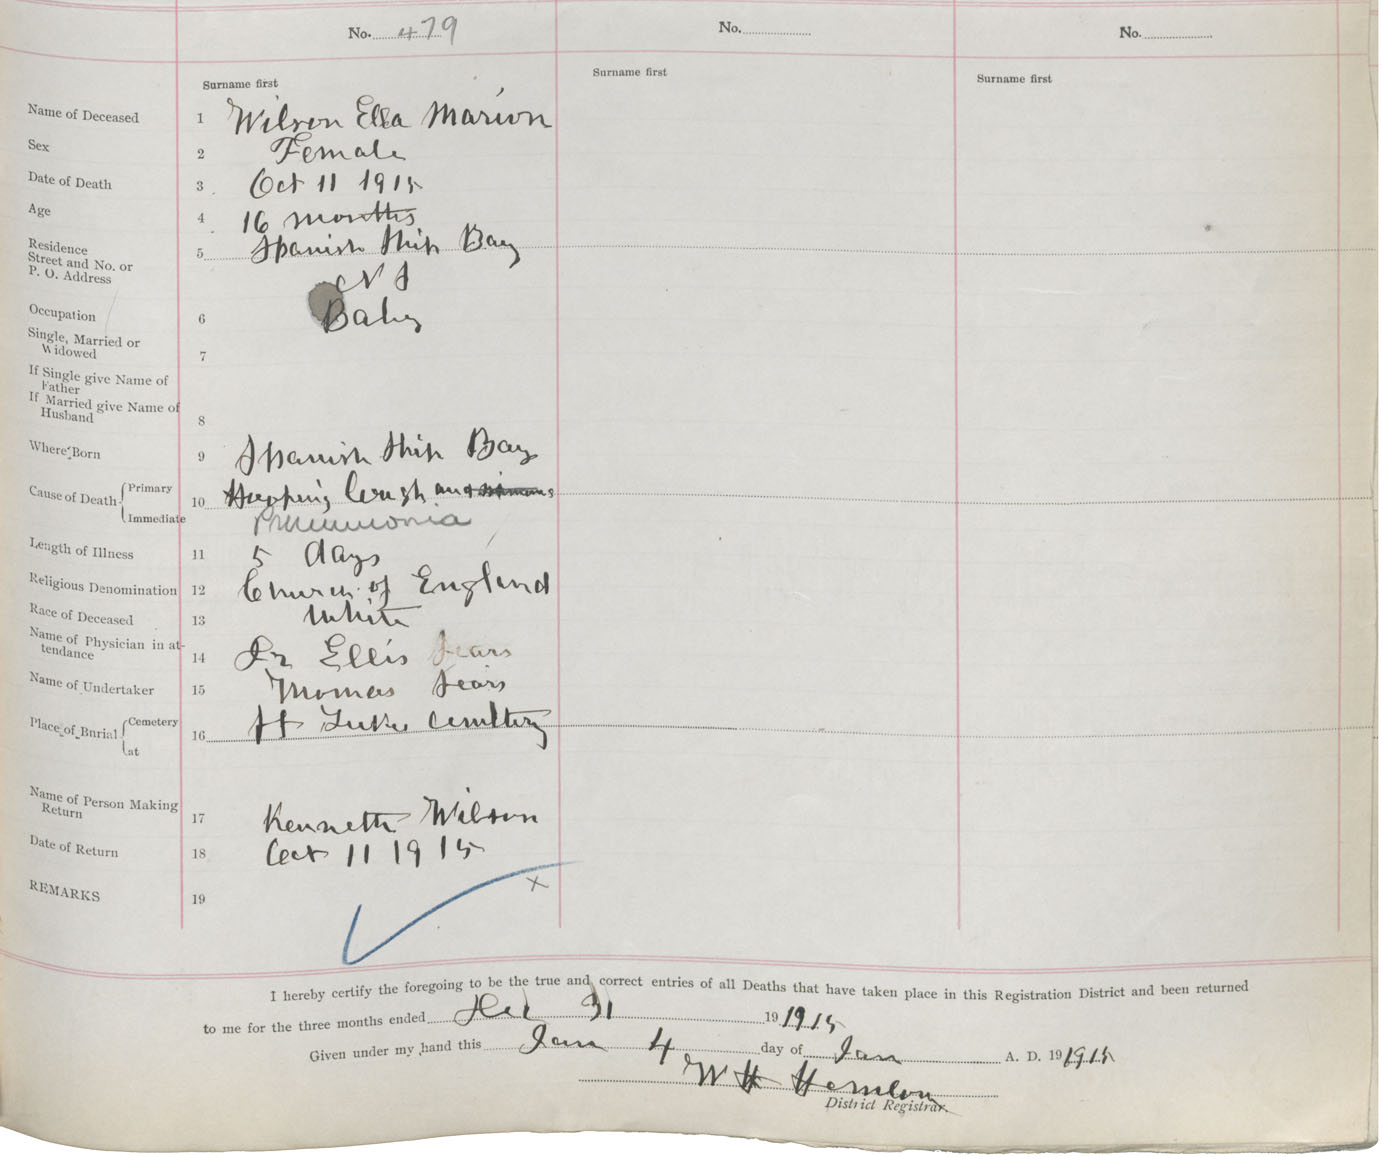 No. 479 No. No.
Surname first Surname first Surname first
Name of Deceased 1 Wilson Ella Marion
Sex 2 Female
Date of Death 3 Oct 11 1915
Age 4 16 months
Residence
Street and No. or
P. O. Address 5 Spanish Ship Bay
N S
Occupation 6 Baby
Single, Married or
Widowed 7
If Single give Name of
Father
If Married give Name of
Husband 8
Where Born 9 Spanish Ship Bay
Cause of Death Primary 10 Hooping Cough and
Immediate Pneumonia
Length of Illness 11 5 days
Religious Denomination 12 Church of England
Race of Deceased 13 White
Name of Physician in at-
tendance 14 Dr Ellis Sears
Name of Undertaker 15 Thomas Sears
Place of Burial Cemetery 16 St Lukes Cemetery
at
Name of Person Making
Return 17 Kenneth Wilson
Date of Return 18 Oct 11 1915
REMARKS 19 x
I hereby certify the foregoing to be the true and correct entries of all Deaths that have taken place in this Registration District and been returned
to me for the three months ended Dec 31 19 1915
Given under my hand this Jan 4 day of Jan A. D. 19 1915
W H
District Registrar.